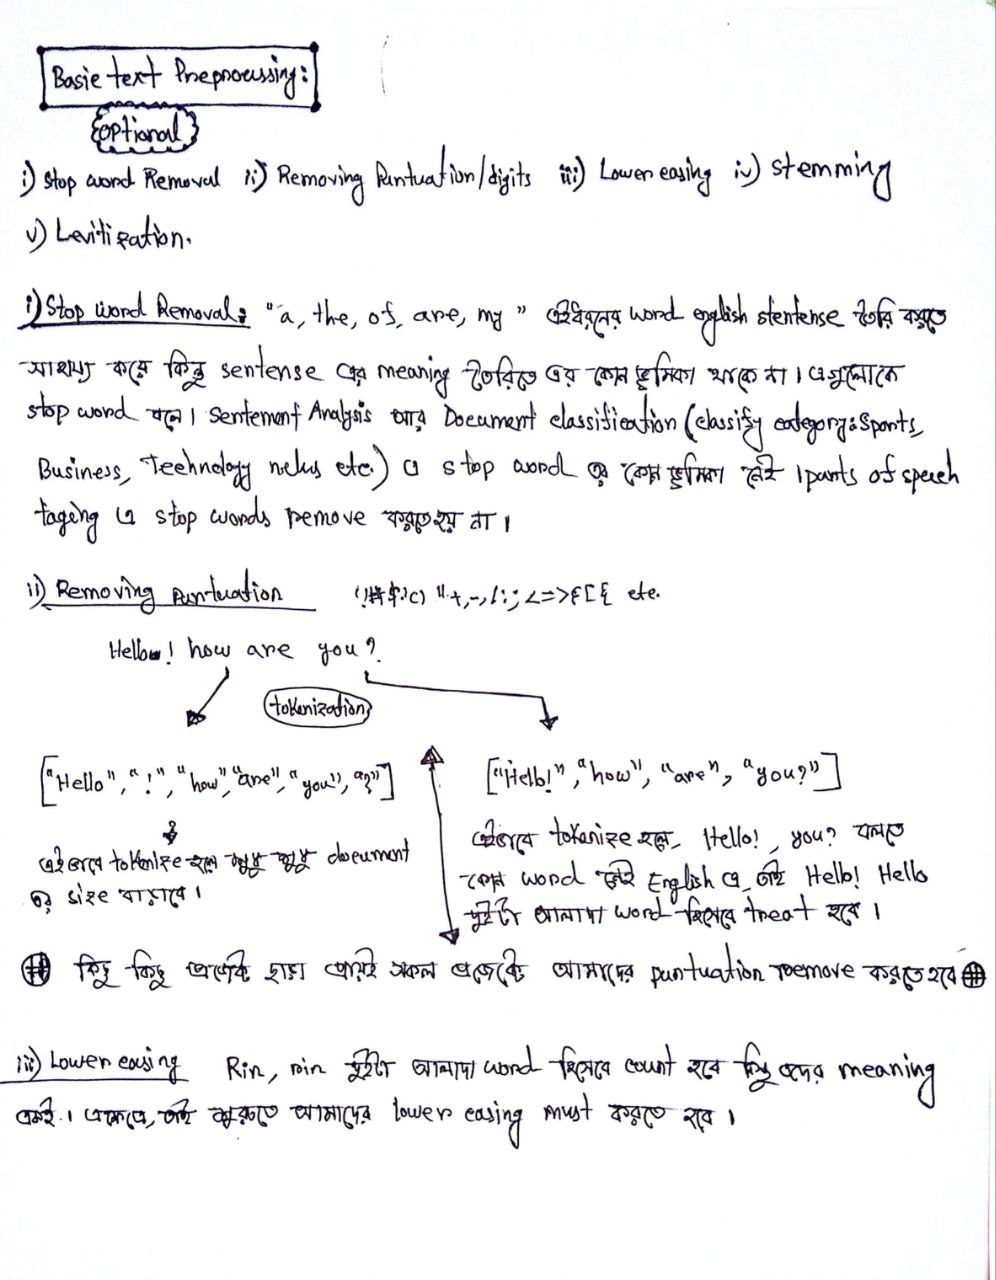 Basic text Preprocessing:
optional
i) Stop word Removal ii) Removing Puntuation/digits iii) Lower casing iv) stemming
v) Levitization.
i) Stop word Removal: "a, the, of, are, my" এইধরনের word english stentense তৈরি করতে
সাহায্য করে কিন্তু sentense এর meaning তৈরিতে এর কোন ভূমিকা থাকে না। এগুলোকে
stop word বলে। Sentement Analysis আর Document classification (classify category: Sports,
Business, Technology news etc.) এ stop word এর কোন ভূমিকা নেই। parts of speech
taging এ stop words remove করতে হয় না।
ii) Removing Puntuation (!#$%'c) "+,-,/:;<=>{[{ etc.
Hello! how are you?
tokenization
["Hello", "!", "how", "are", "you", "?"]
["Hello!", "how", "are", "you?"]
এইভাবে tokenize হলে শুধু শুধু document
এর size বাড়াবে।
এইভাবে tokenize হলে, Hello!, you? বলতে
কোন word নেই English এ, তাই Hello! Hello
দুইটা আলাদা word হিসেবে treat হবে।
# কিছু কিছু প্রজেক্ট ছাড়া প্রায়ই সকল প্রজেক্টে আমাদের puntuation remove করতে হবে #
iii) Lower casing Rin, rin দুইটা আলাদা word হিসেবে count হবে কিন্তু এদের meaning
একই। এক্ষেত্রে, তাই শুরুতে আমাদের lower casing must করতে হবে।